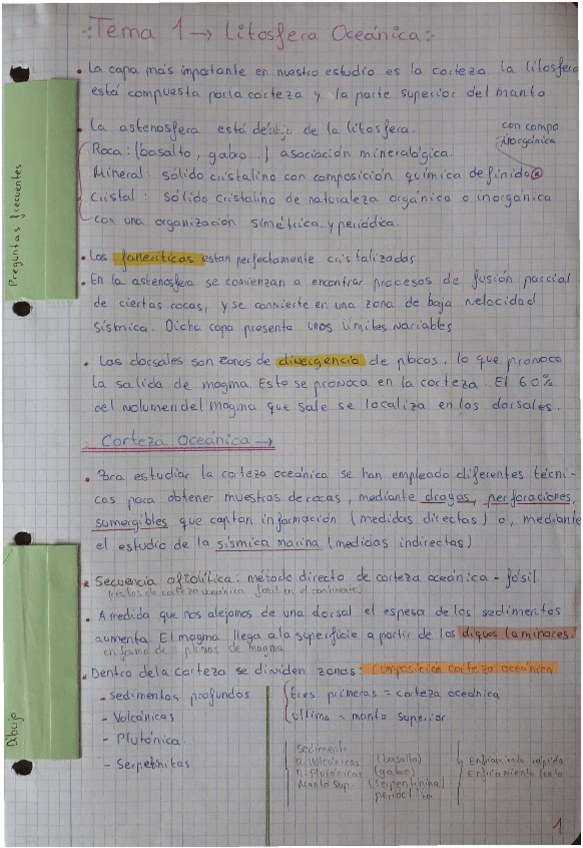 Tema 1 → Litosfera Oceánica:
· La capa más importante en nuestro estudio es la corteza. La litosfera
está compuesta por la corteza y la parte superior del manto
· La astenosfera está detrás de la litosfera.
con compo
inorgánica
Roca: (basalto, gabo...) asociación mineralógica.
Mineral: sólido cristalino con composición química definido
Cristal: sólido cristalino de naturaleza orgánica o inorgánica
con una organización simétrica y periódica.
Preguntas frecuentes
· Las faneríticas estan perfectamente cristalizadas
· En la astenosfera se comienzan a encontrar procesos de fusión parcial
de ciertas rocas, y se convierte en una zona de baja velocidad
sísmica. Dicha capa presenta unos límites variables
· Las dorsales son zonas de divergencia de placas, lo que provoca
la salida de magma. Esto se provoca en la corteza. El 60%
del volumen del magma que sale se localiza en las dorsales.
Corteza Oceánica →
· Para estudiar la corteza oceánica se han empleado diferentes técni-
cas para obtener muestras de rocas, mediante dragas, perforaciones,
sumergibles que captan información (medidas directas) o, mediante
el estudio de la sísmica marina (medidas indirectas)
· Secuencia ofiolítica: método directo de corteza oceánica - fósil
(restos de corteza oceánica fósil en el continente)
· A medida que nos alejamos de una dorsal el espesor de los sedimentos
aumenta. El magma llega a la superficie a partir de los diques laminares
en forma de plumas de magma
· Dentro de la corteza se dividen zonas: Composición corteza oceánica
- Sedimentos profundos
- Volcánicas
- Plutónica
- Serpetinitas
(tres primeras = corteza oceánica
última = manto superior
Sedimento
R. Volcánicas (basalto)
R. Plutónicas (gabo)
Manto sup. (serpentina)
peridotita
Enfriamiento rápido
Enfriamiento lento
Dibujo
1